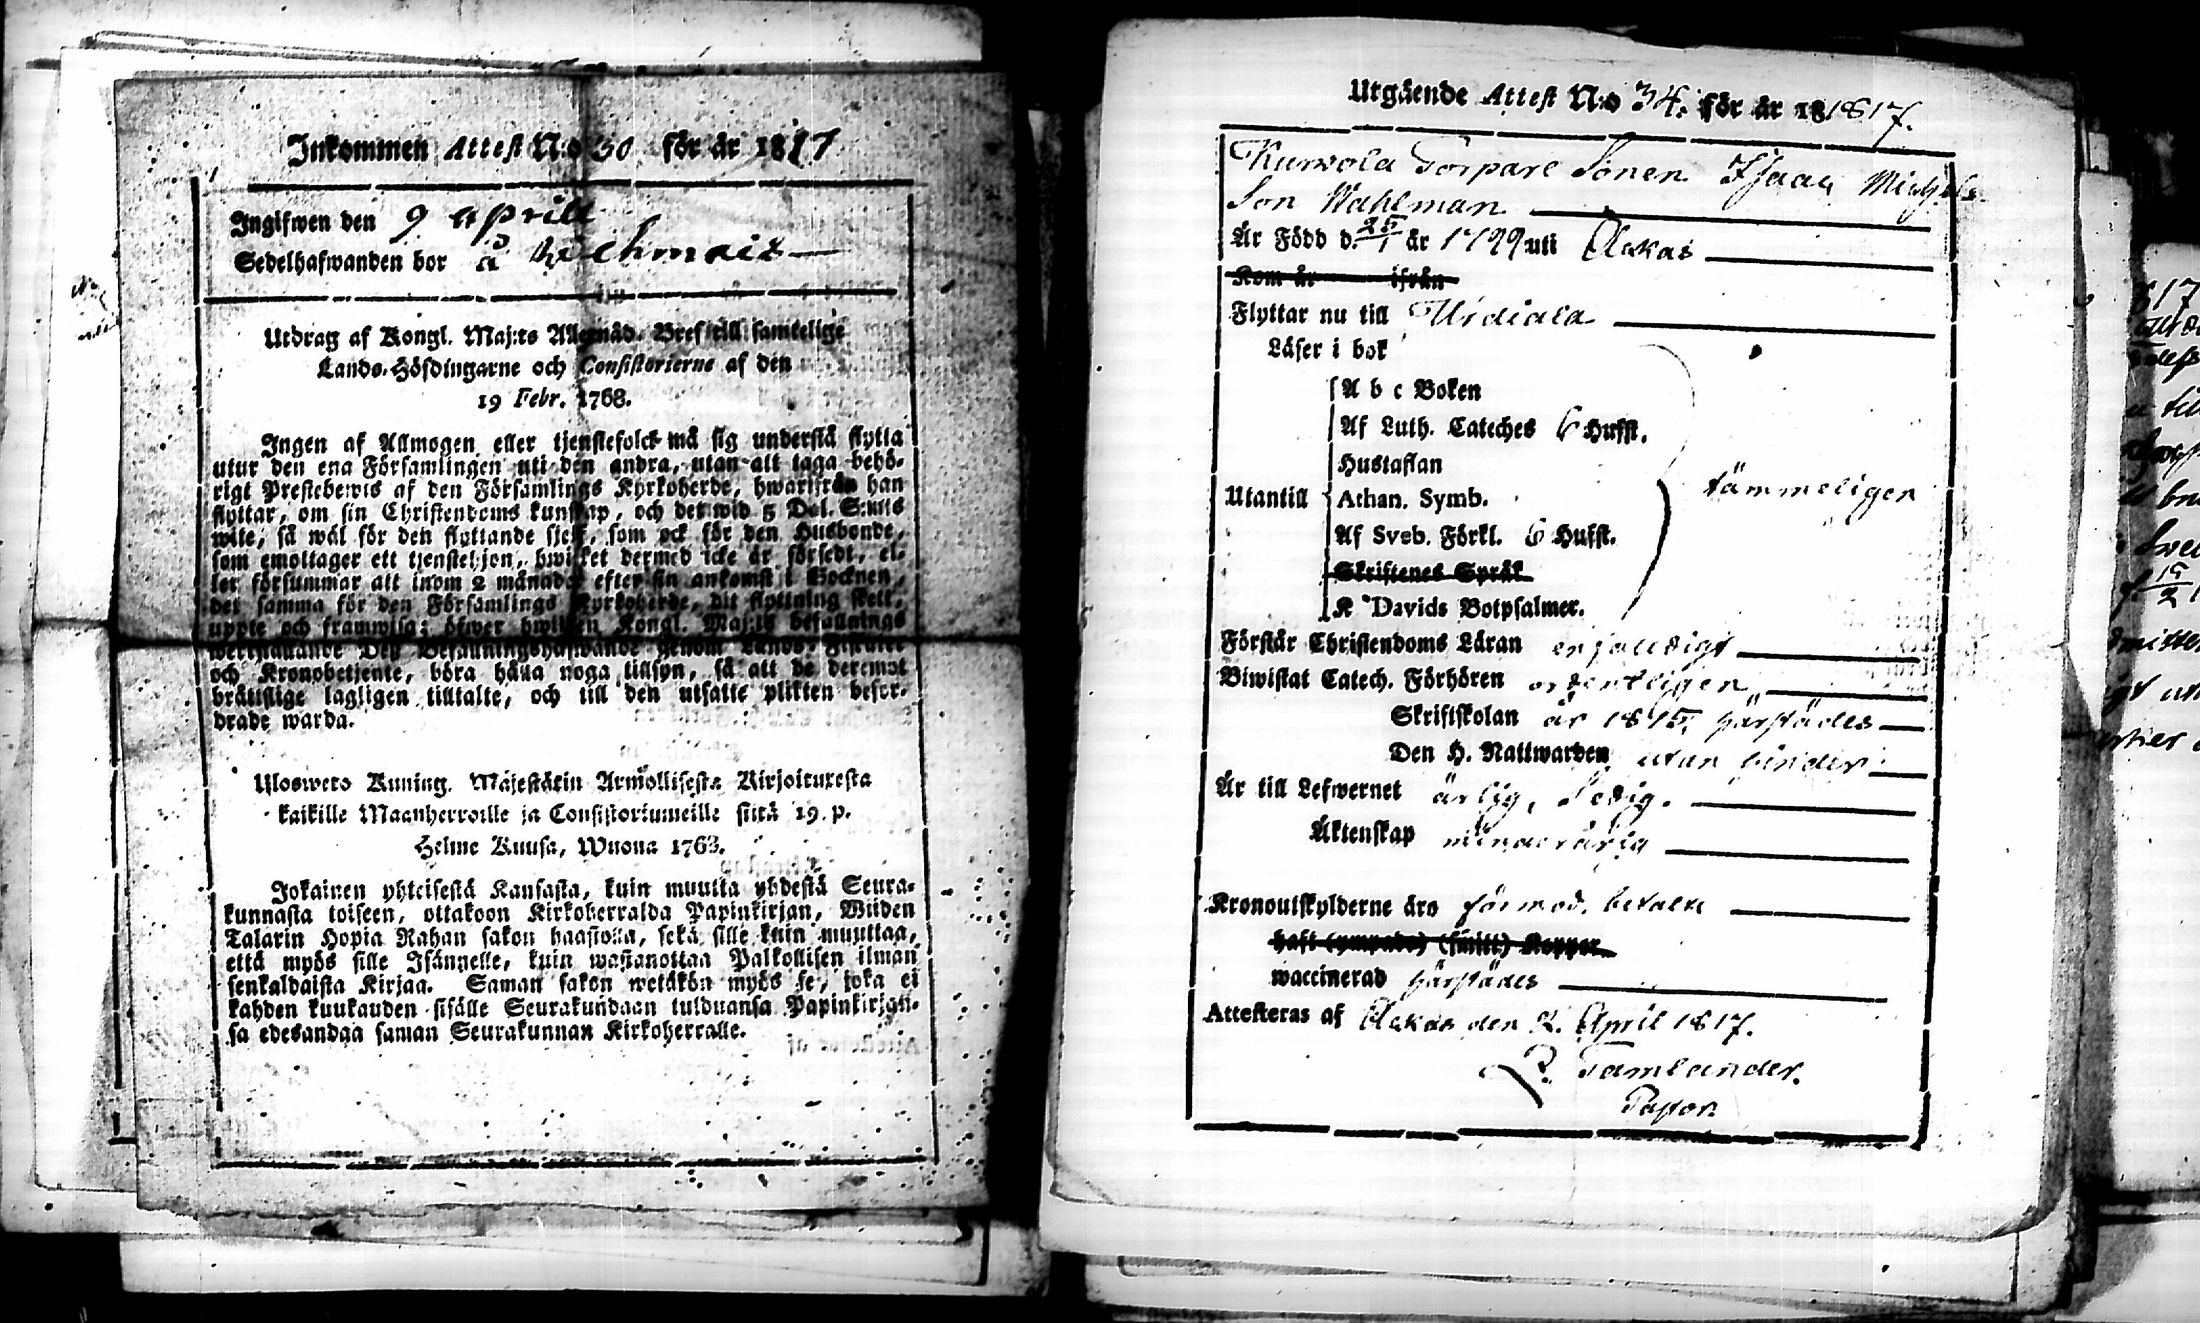 Inkommen Attest N:o 30 för år 1817
Ingifwen den 9 aprill
Sedelhafwanden bor å Wechmais
Utdrag af Kongl. Maj:ts Allernåd. Bref till samtelige
Lands-Höfdingarne och Consistorierne af den
19 Febr. 1768.
Ingen af Allmogen eller tjenstefolck må sig understå flytta
utur den ena Församlingen uti den andra, utan att taga behö-
rigt Prestebewis af den Församlings Kyrkoherde, hwarifrån han
flyttar, om sin Christendoms kunskap, och det wid 5 Dal. S:mts
wite, så wäl för den flyttande sjelf, som ock för den Husbonde,
som emottager ett tjenstehjon, hwilket dermed icke är försedt, el-
ler försummar att inom 2 månader efter sin ankomst i Socknen,
det samma för den Församlings Kyrkoherde, dit flyttning skett,
uppte och framwisa; öfwer hwilken Kongl. Maj:ts befallnings
werkställande Des Befallningshafwande genom Lands-Fiscaler
och Kronobetjente, böra hålla noga tillsyn, så att de deremot
bråttslige lagligen tilltalte, och till den utsatte plikten befor-
drade warda.
Ulosweto Kuning. Majestätin Armollisesta Kirjoituxesta
kaikille Maanherroille ja Consistoriumeille siitä 19. p.
Helme Kuusa, Wuona 1768.
Jokainen yhteisestä Kansasta, kuin muutta yhdestä Seura-
kunnasta toiseen, ottakoon Kirkoherralda Papinkirjan, Wiiden
Talarin Hopia Rahan sakon haastolla, sekä sille kuin muuttaa,
että myös sille Isännelle, kuin wastanottaa Palkollisen ilman
senkaldaista Kirjaa. Saman sakon wetäkön myös se, joka ei
kahden kuukauden sisälle Seurakundaan tulduansa Papinkirjan-
sa edesandaa saman Seurakunnan Kirkoherralle.
Utgående Attest N:o 34. för år 18 1817.
Kurvola Torpare Sonen Isaac Michels
Son Wahlman
Är Född d. 25/1 år 1799 uti Ackas
Kom år ifrån
Flyttar nu till Urdiala
Läser i bok
A b c Boken
Af Luth. Cateches 6 Hufst.
Hustaflan
Utantill Athan. Symb. tämmeligen
Af Sveb. Förkl. 6 Hufst.
Skriftenes Språk
K Davids Botpsalmer.
Förstår Christendoms Läran enfalldigt
Biwistat Catech. Förhören ordentligen
Skriftskolan år 1815, härstädes
Den H. Nattwarden utan hinder
Är till Lefwernet ärlig, Ledig.
Äktenskap minderårig
Kronoutskylderne äro förmod. betalte
haft (ympade) (smitt) Kopper
waccinerad härstädes
Attesteras af Ackas den 2. April 1817.
P. Tamlander.
Pastor